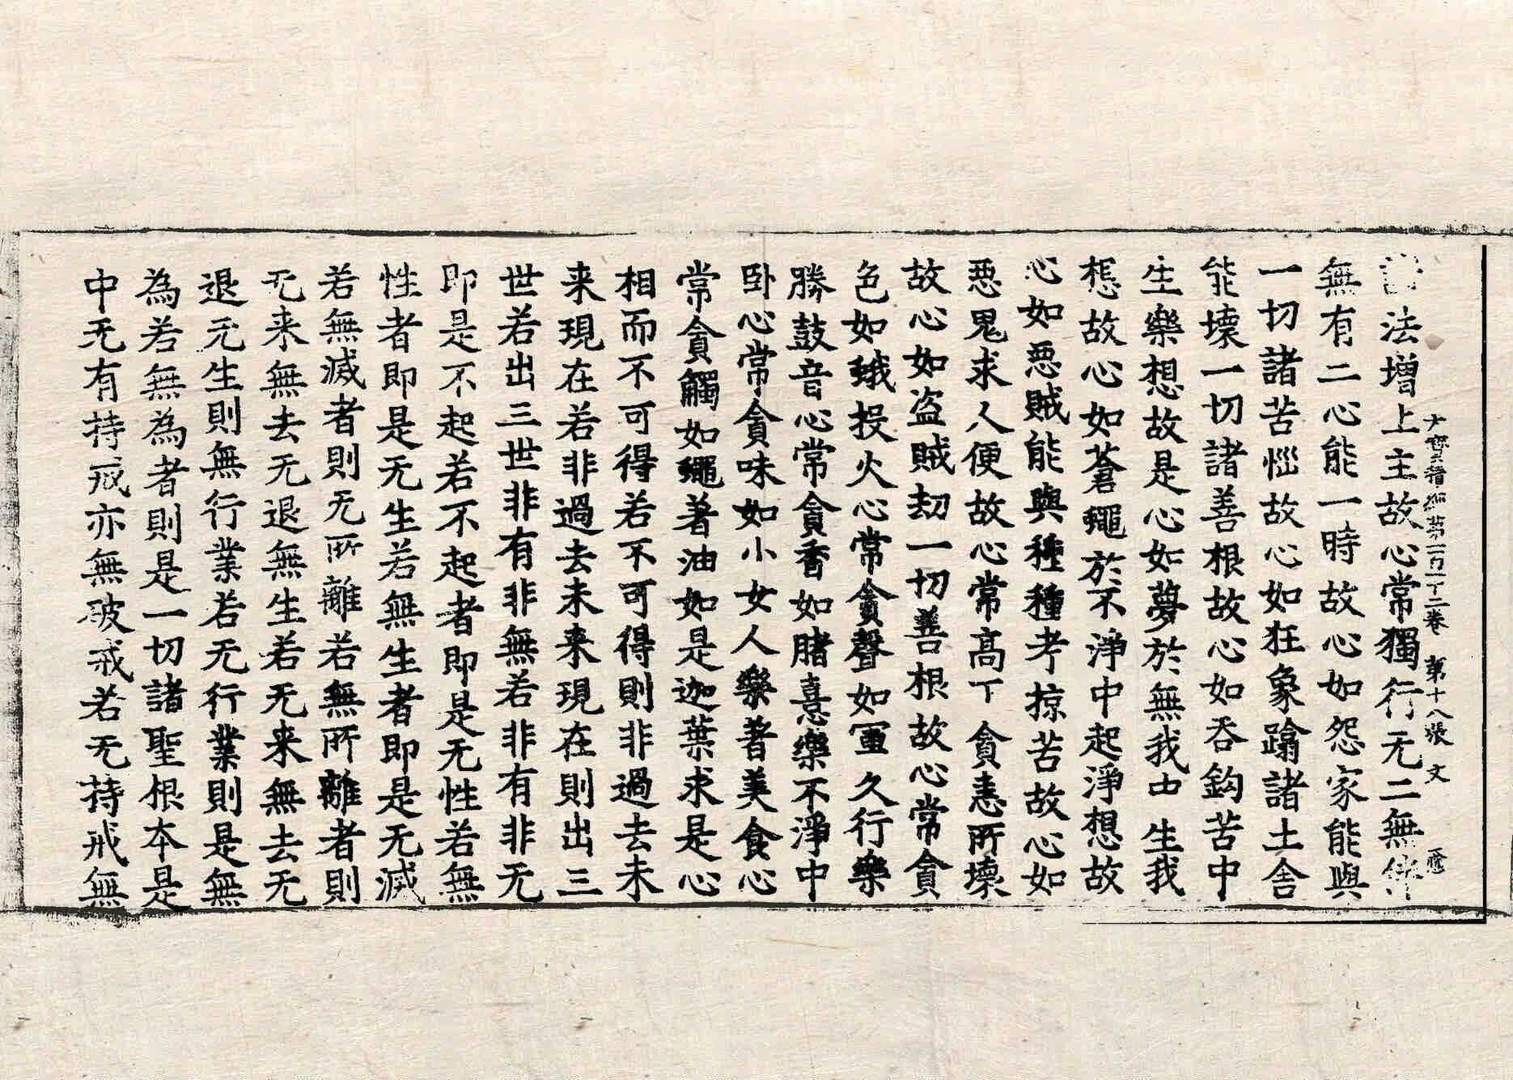 大寶積經第一百一十二卷 第十八張 文
諸法增上主故心常獨行无二無伴
無有二心能一時故心如怨家能與
一切諸苦惱故心如狂象蹋諸土舍
能壞一切諸善根故心如吞鈎苦中
生樂想故是心如夢於無我中生我
想故心如蒼蠅於不淨中起淨想故
心如惡賊能與種種考掠苦故心如
惡鬼求人便故心常高下貪恚所壞
故心如盜賊劫一切善根故心常貪
色如蛾投火心常貪聲如軍久行樂
勝鼓音心常貪香如猪憙樂不淨中
卧心常貪味如小女人樂著美食心
常貪觸如蠅著油如是迦葉求是心
相而不可得若不可得則非過去未
来現在若非過去未来現在則出三
世若出三世非有非無若非有非无
即是不起若不起者即是无性若無
性者即是无生若無生者即是无滅
若無滅者則无所離若無所離者則
无来無去无退無生若无来無去无
退无生則無行業若无行業則是無
為若無為者則是一切諸聖根本是
中无有持戒亦無破戒若无持戒無